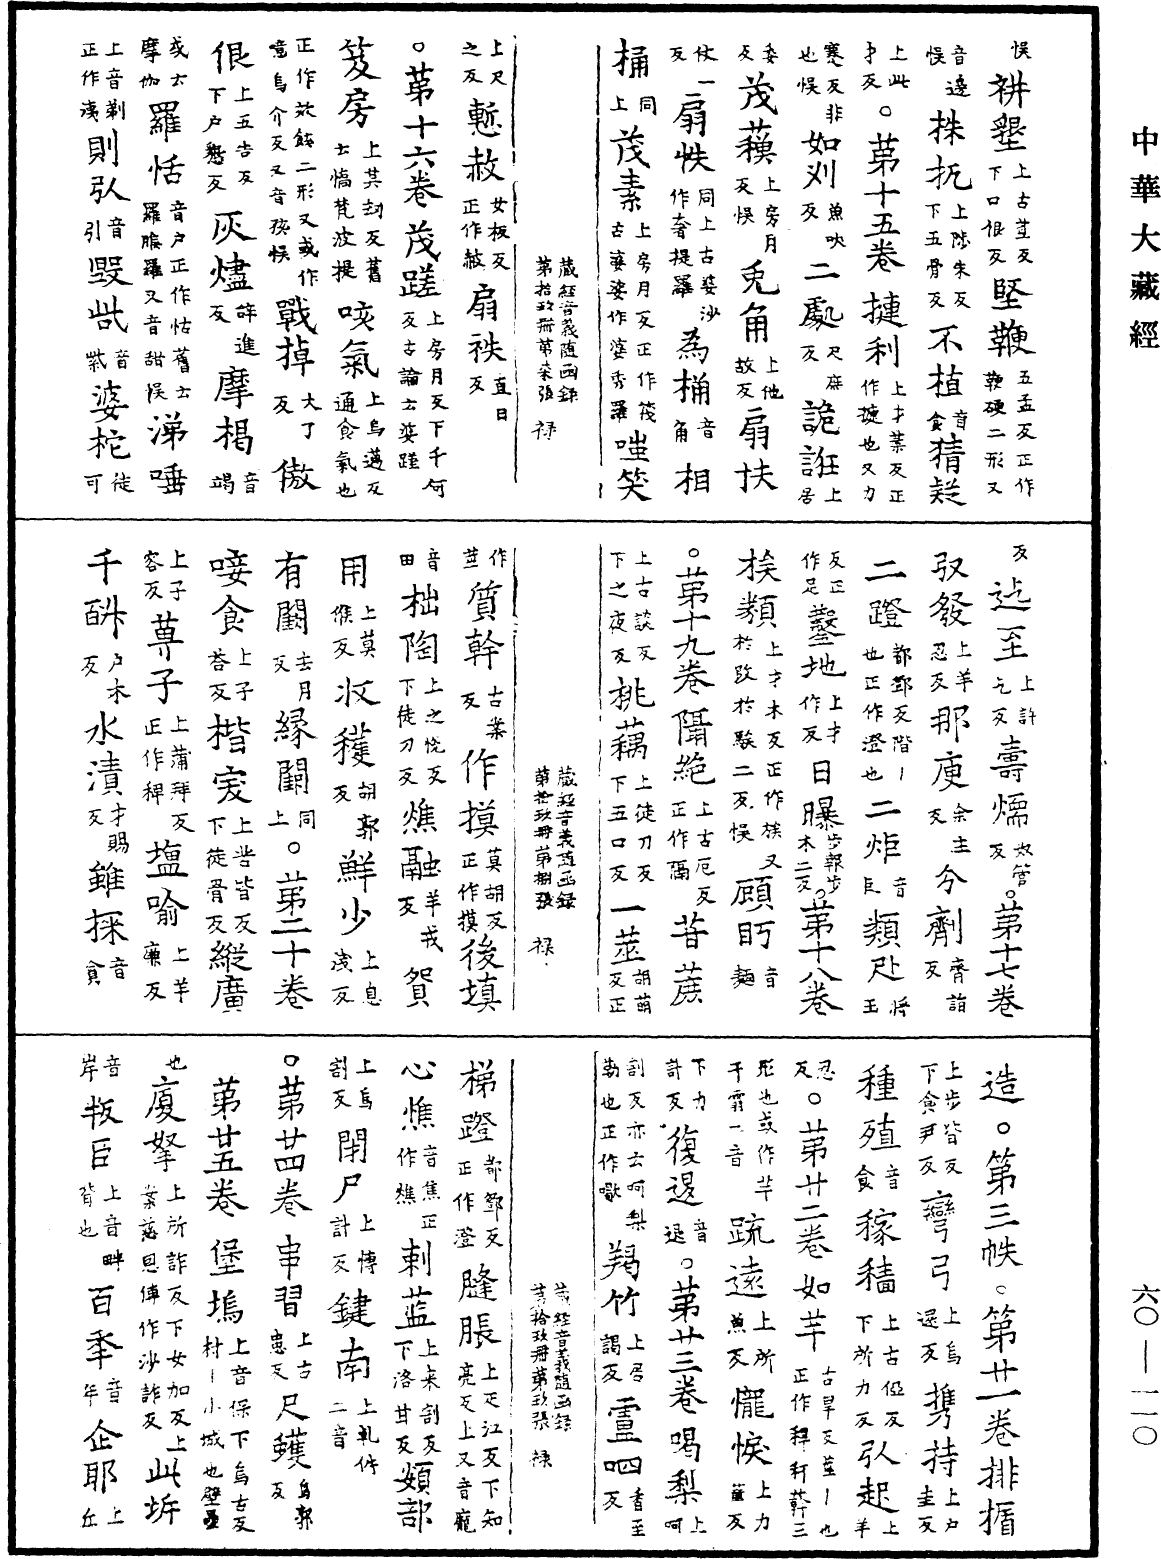 中華大藏經
悞耕墾上古莖反下口佷反堅鞭五孟反正作鞕硬二形又
音邊悞株扤上陟朱反下五骨反不植音食猜疑
上此才反。第十五卷揵利上才葉反正作揵也又力
蹇反非也悞如刈魚吠反二處尺庶反詭誑上居
委反茂䕸上房月反悞兎角上他故反扇扶
仗一反扇帙同上古婆沙作奢搋羅為桷音角相
桷同上茂素上房月反正作筏古婆婆作婆秀羅嗤笑
藏經音義隨函錄第拾玖冊第柒張 禄
上尺之反慙赦女板反正作赧扇袟直日反
。第十六卷茂蹉上房月反下千何反古論云婆蹉
笈房上其劫反舊云憍梵波提咳氣上烏邁反通食氣也
正作欬餩二形又或作意烏介反又音孩悞戰掉大了反傲
佷上五告反下户懇反灰燼辝進反摩楬音竭
或云摩伽羅恬音户正作怙舊云羅睺羅又音甜悞涕唾
上音剃正作洟則弘音引毀呰音紫婆柁徒可
反迄至上許乞反壽煗奴管反。第十七卷
馭發上羊忍反那庾余主反今劑齊詣反
二蹬都鄧反階丨也正作澄也二炬音巨類𧿁將玉
反正作足鑿地上才作反日曝步報步木二反。第十八卷
挨類上才木反正作族又於改於駭二反悞顧眄音麵
。第十九卷隔絶上古厄反正作隔苷蔗
上古談反下之夜反桃藕上徒刀反下五口反一莖胡萌反正
藏經音義隨函錄第拾玖冊第捌張 禄
作莖質幹古案反作摸莫胡反正作摸後填
音田柮陶上之悅反下徒刀反燋融羊戎反貿
用上莫候反收穫胡郭反鮮少上息淺反
有闕去月反緣闕同上。第二十卷
唼食上子荅反楷宊上皆皆反下徒骨反縱廣
上子容反蓴子上蒲拜反正作稗塩喻上羊廉反
千斛户木反水漬才賜反雖採音食
造。第三帙。第廿一卷排揗
上步皆反下食尹反彎弓上烏還反攜持上户圭反
種殖音食稼穡上古俓反下所力反弘起上羊
忍反。第廿二卷如芉古旱反莖丨也正作稈秆蓒三
形也或作芉干䨲一音疏遠上所魚反懺悷上力董反
下力計反復退音退。第廿三卷喝梨上呵
割反亦云呵梨勒也正作㰤羯竹上居謁反𤫊呬香至反
藏經音義隨函錄第拾玖冊第玖張 禄
梯蹬都鄧反正作澄膖脹上疋江反下知亮反上又音龐
心燋音焦正作憔剌藍上来割反下洛甘反頞部
上烏割反閇尸上博計反鍵南上乹件二音
。第廿四卷串習上古患反尺蠖烏郭反
第廿五卷堡塢上音保下烏古反村丨小城也壁壘
也廈拏上所詐反下女加反上案慈恩傳作沙詐反此圻
音岸叛臣上音畔背也百秊音年企耶上丘
六〇—一一〇